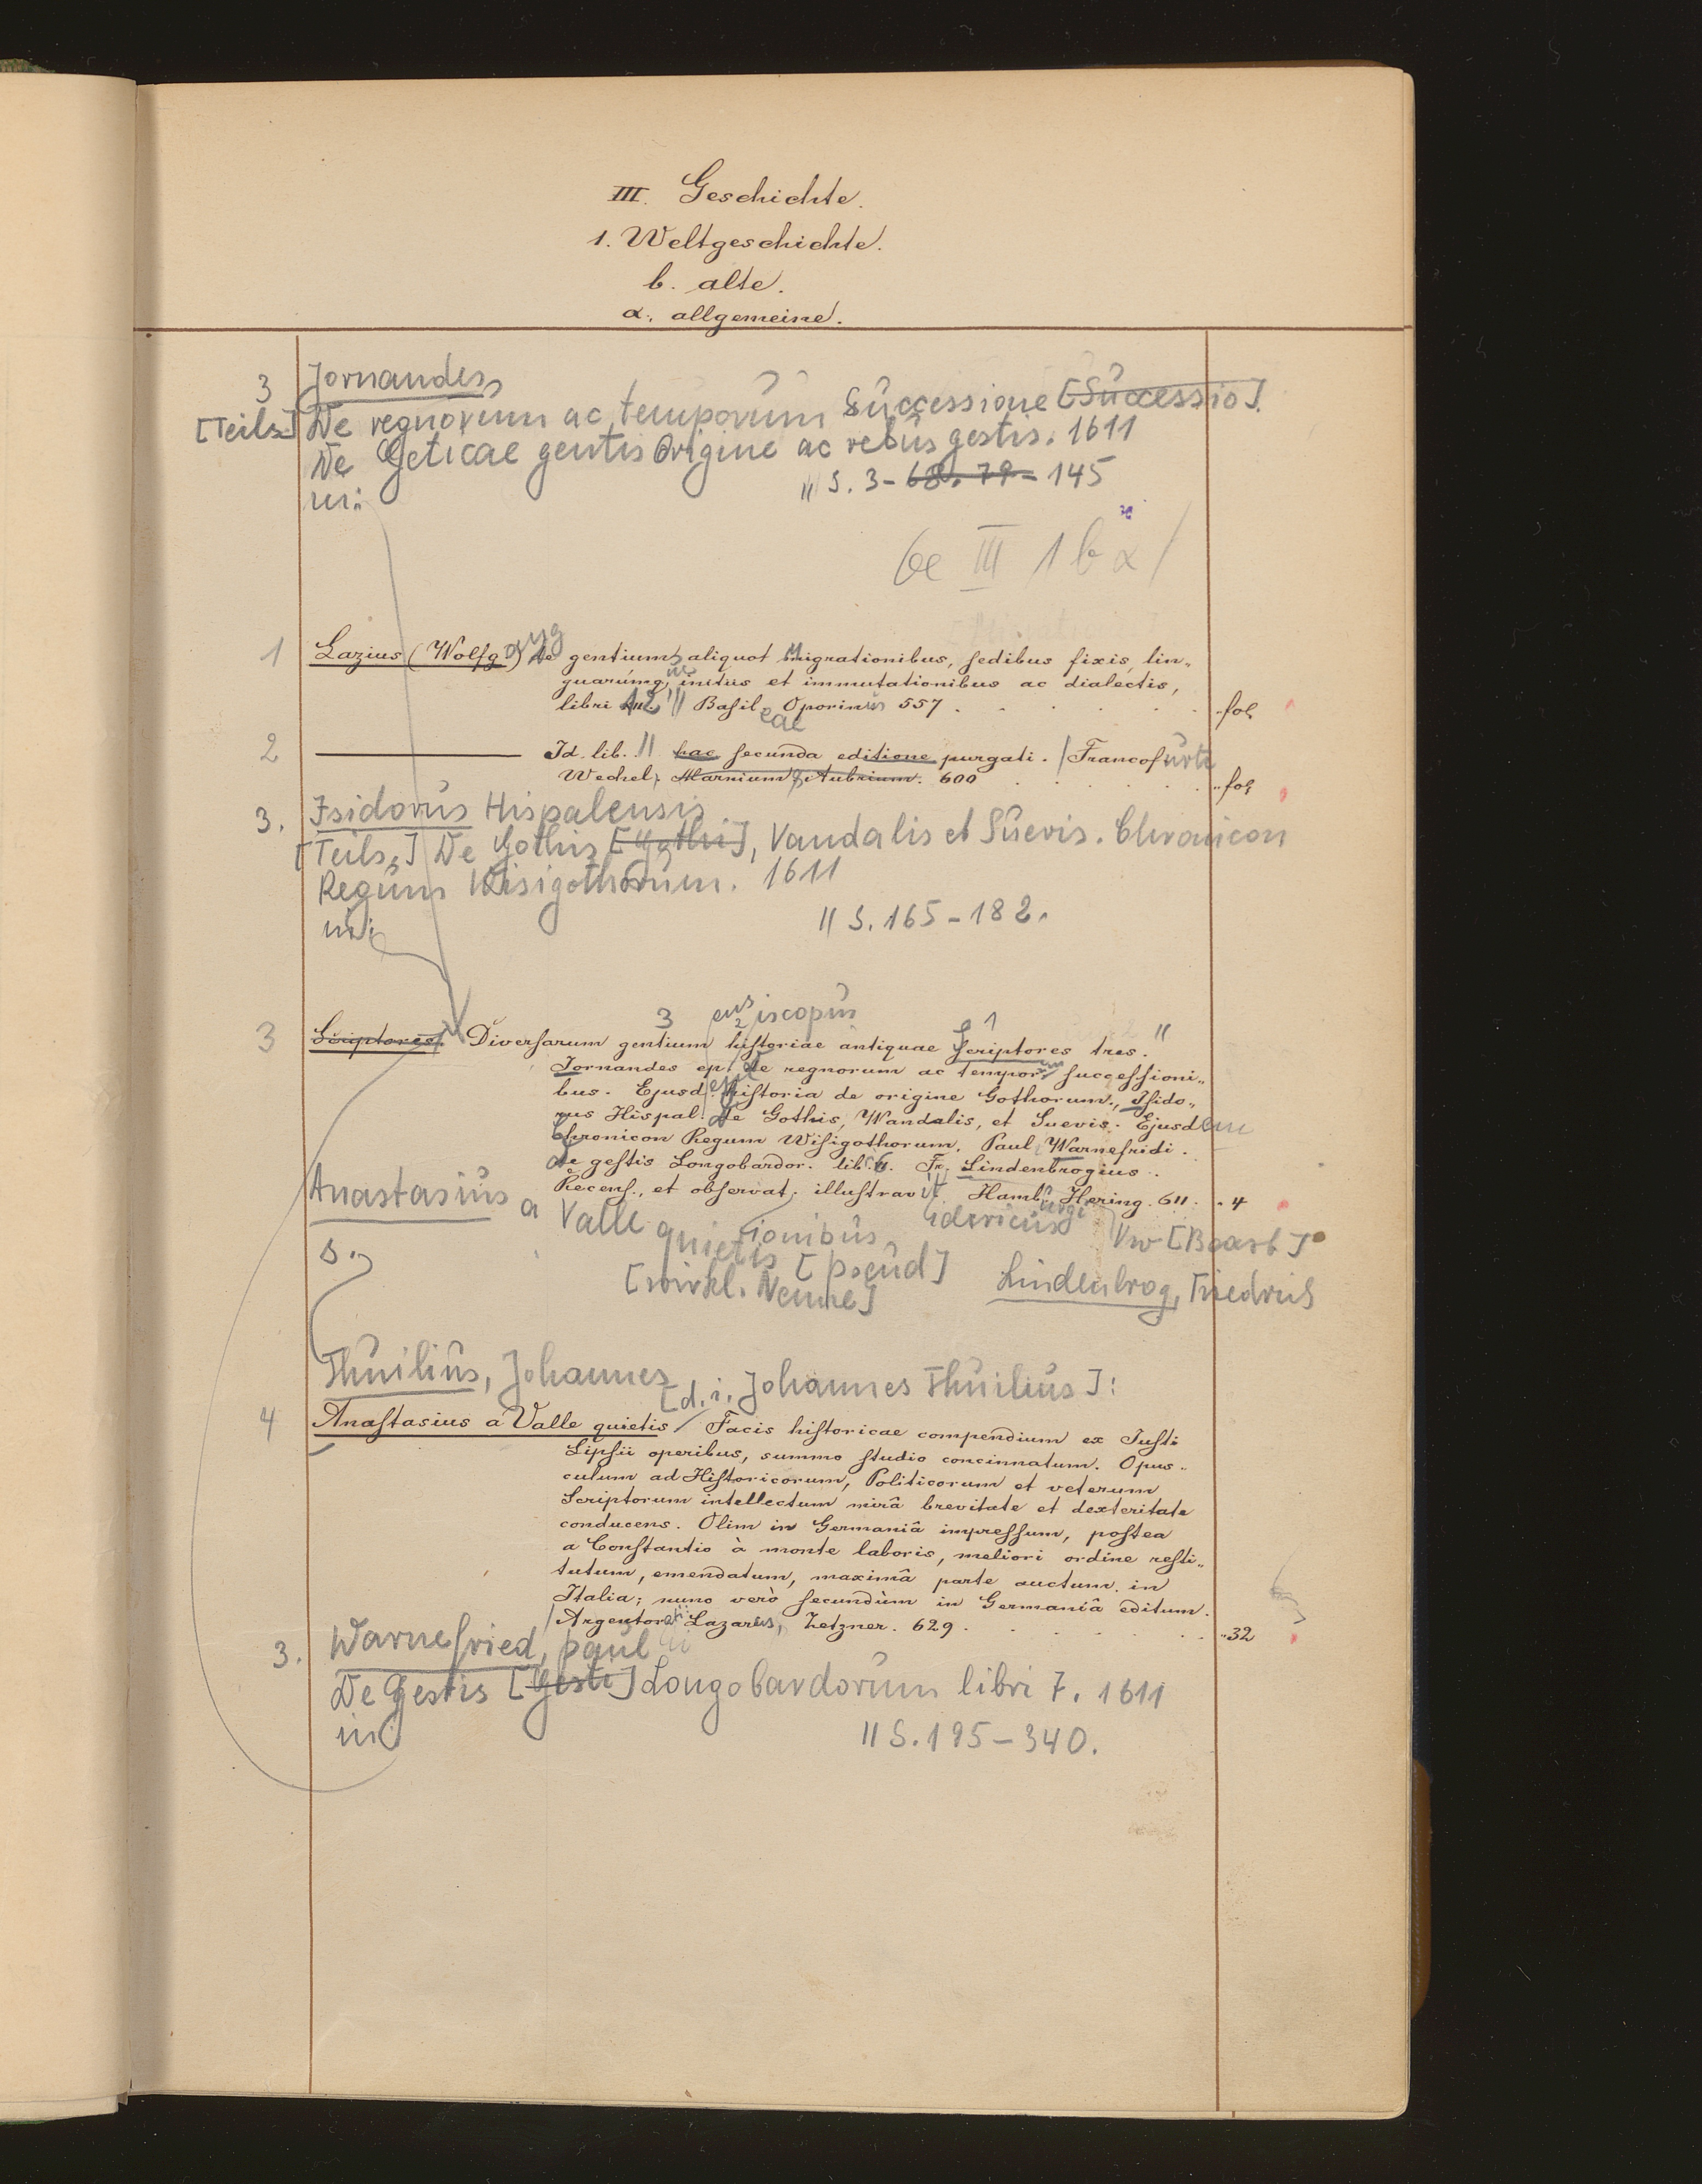 III. Geschichte.
1. Weltgeschichte.
b. alte.
α. allgemeine.
3 Jornandes
[Teils] De regnorum ac temporum Successione [Successio].
De Geticae gentis Origine ac rebus gestis. 1611
in: // S. 3-68. 79-145
III 1 b α
1 Lazius (Wolfg.) de gentium aliquot migrationibus, sedibus fixis, lin-
guarumq, initiis et immutationibus ac dialectis,
libri 12 // Basileae Oporinus 557. fol
2 ——— Id. lib. // hac secunda editione purgati. / Francofurti
Wechel, Marnium & Aubrium. 600 fol
3. Isidorus Hispalensis
[Teils] De Gothis [Gothi], Vandalis et Suevis. Chronicon
Regum Wisigothorum. 1611
in: // S. 165-182.
3 ensis iscopus 1
3 Scriptores. Diversarum gentium historiae antiquae Scriptores tres. //
Jornandes ep. de regnorum ac temporum successioni-
bus. Ejusd. historia de origine Gothorum., Isido-
rus Hispal. de Gothis, Wandalis, et Suevis. Ejusdem
Chronicon Regum Wisigothorum. Paul. Warnefridi.
de gestis Longobardor. lib. 6. Fr. Lindenbrogius.
Recens., et observat, illustravit. Hamb. Hering. 611. 4
Anastasius a Valle quietis ionibus idericus urgi
[pseud]
s. [wirkl. Name] Lindenbrog, Friedrich
Thuilius, Johannes
[d. i. Johannes Thuilius]:
4 Anastasius a Valle quietis Facis historicae compendium ex Justi
Lipsii operibus, summo studio concinnatum. Opus-
culum ad Historicorum, Politicorum et veterum
Scriptorum intellectum mirâ brevitate et dexteritate
conducens. Olim in Germaniâ impressum, postea
a Constantio à monte laboris, meliori ordine resti-
tutum, emendatum, maximâ parte auctum in
Italia; nunc verò secundùm in Germaniâ editum.
Argentorati Lazarus, Zetzner. 629. 32
3. Warnefried, Paul
De Gestis [Gesti] Longobardorum libri 7. 1611
in: // S. 195-340.